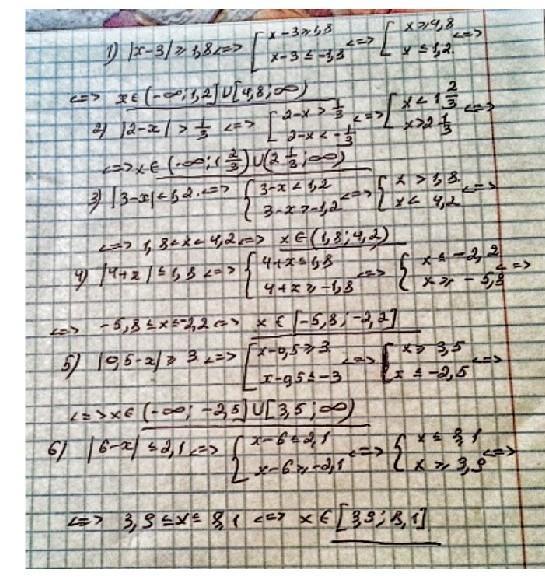 1) |x-3| ≥ 1,8 <=> [ x-3 ≥ 1,8 <=> [ x ≥ 4,8 <=>
x-3 ≤ -1,8 x ≤ 1,2
<=> x ∈ (-∞; 1,2] ∪ [4,8; ∞)
2) |2-x| > 1/3 <=> [ 2-x > 1/3 <=> [ x < 1 2/3 <=>
2-x < -1/3 x > 2 1/3
<=> x ∈ (-∞; 1 2/3) ∪ (2 1/3; ∞)
3) |3-x| < 1,2 <=> { 3-x < 1,2 <=> { x > 1,8 <=>
3-x > -1,2 x < 4,2
<=> 1,8 < x < 4,2 <=> x ∈ (1,8; 4,2)
4) |4+x| ≤ 1,8 <=> { 4+x ≤ 1,8 <=> { x ≤ -2,2 <=>
4+x ≥ -1,8 x ≥ -5,8
<=> -5,8 ≤ x ≤ -2,2 <=> x ∈ [-5,8; -2,2]
5) |0,5-x| ≥ 3 <=> [ x-0,5 ≥ 3 <=> [ x ≥ 3,5 <=>
x-0,5 ≤ -3 x ≤ -2,5
<=> x ∈ (-∞; -2,5] ∪ [3,5; ∞)
6) |6-x| ≤ 2,1 <=> { x-6 ≤ 2,1 <=> { x ≤ 8,1 <=>
x-6 ≥ -2,1 x ≥ 3,9
<=> 3,9 ≤ x ≤ 8,1 <=> x ∈ [3,9; 8,1]